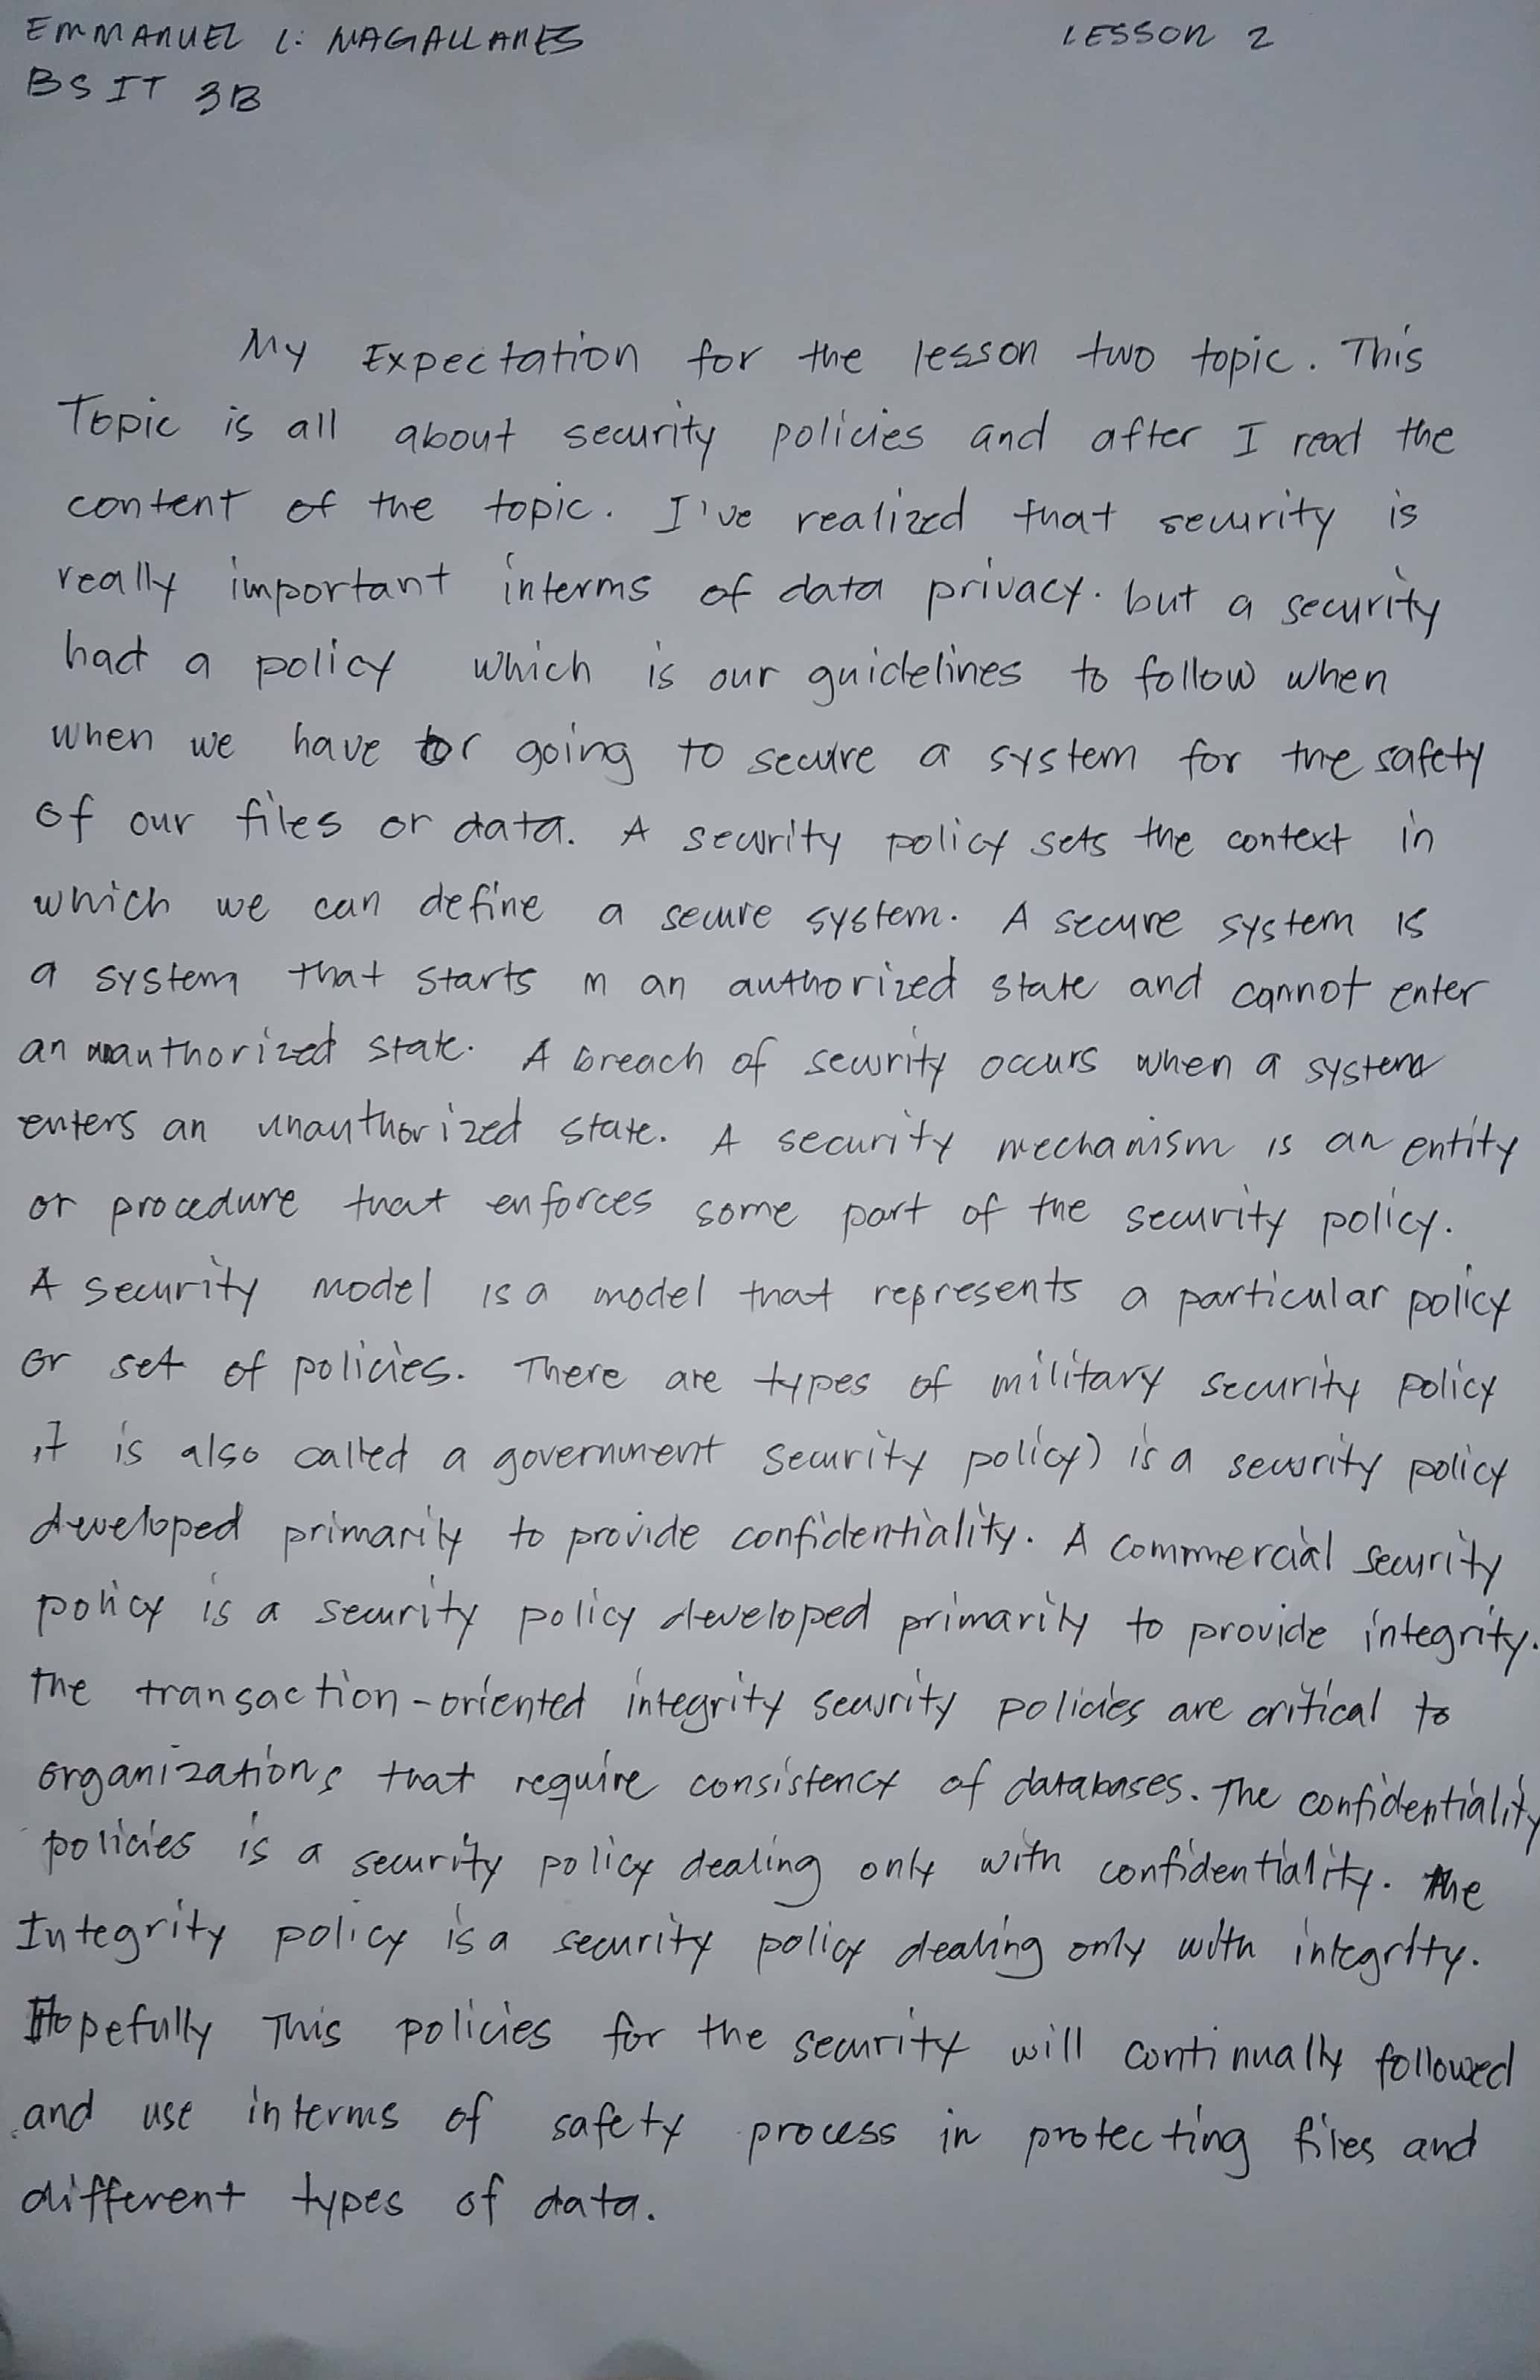 EMMANUEL L. MAGALLANES LESSON 2
BS IT 3B
My Expectation for the lesson two topic. This
Topic is all about security policies and after I read the
content of the topic. I've realized that security is
really important interms of data privacy. but a security
had a policy which is our guidelines to follow when
when we have or going to secure a system for the safety
of our files or data. A security policy sets the context in
which we can define a secure system. A secure system is
a system that starts in an authorized state and cannot enter
an unauthorized state. A breach of security occurs when a system
enters an unauthorized state. A security mechanism is an entity
or procedure that enforces some part of the security policy.
A security model is a model that represents a particular policy
or set of policies. There are types of military security policy
it is also called a government security policy) is a security policy
developed primarily to provide confidentiality. A commercial security
policy is a security policy developed primarily to provide integrity.
The transaction-oriented integrity security policies are critical to
organizations that require consistency of databases. The confidentiality
policies is a security policy dealing only with confidentiality. The
Integrity policy is a security policy dealing only with integrity.
Hopefully This policies for the security will continually followed
and use interms of safety process in protecting files and
different types of data.